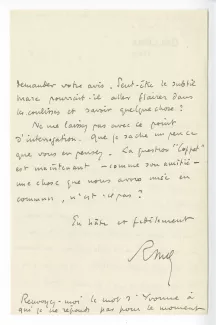 demander votre avis. Peut-être le subtil
Marc pourrait-il aller flairer dans
les coulisses et savoir quelque chose ?
Ne me laissez pas avec ce point
d'interrogation. Que je sache un peu ce
que vous en pensez. La question "Coffet"
est maintenant - comme son amitié -
une chose que nous avons mise en
commun, n'est-ce pas ?
En hâte et fidèlement
Renvoyez-moi le mot d'Yvonne à
qui je ne réponds pas pour le moment